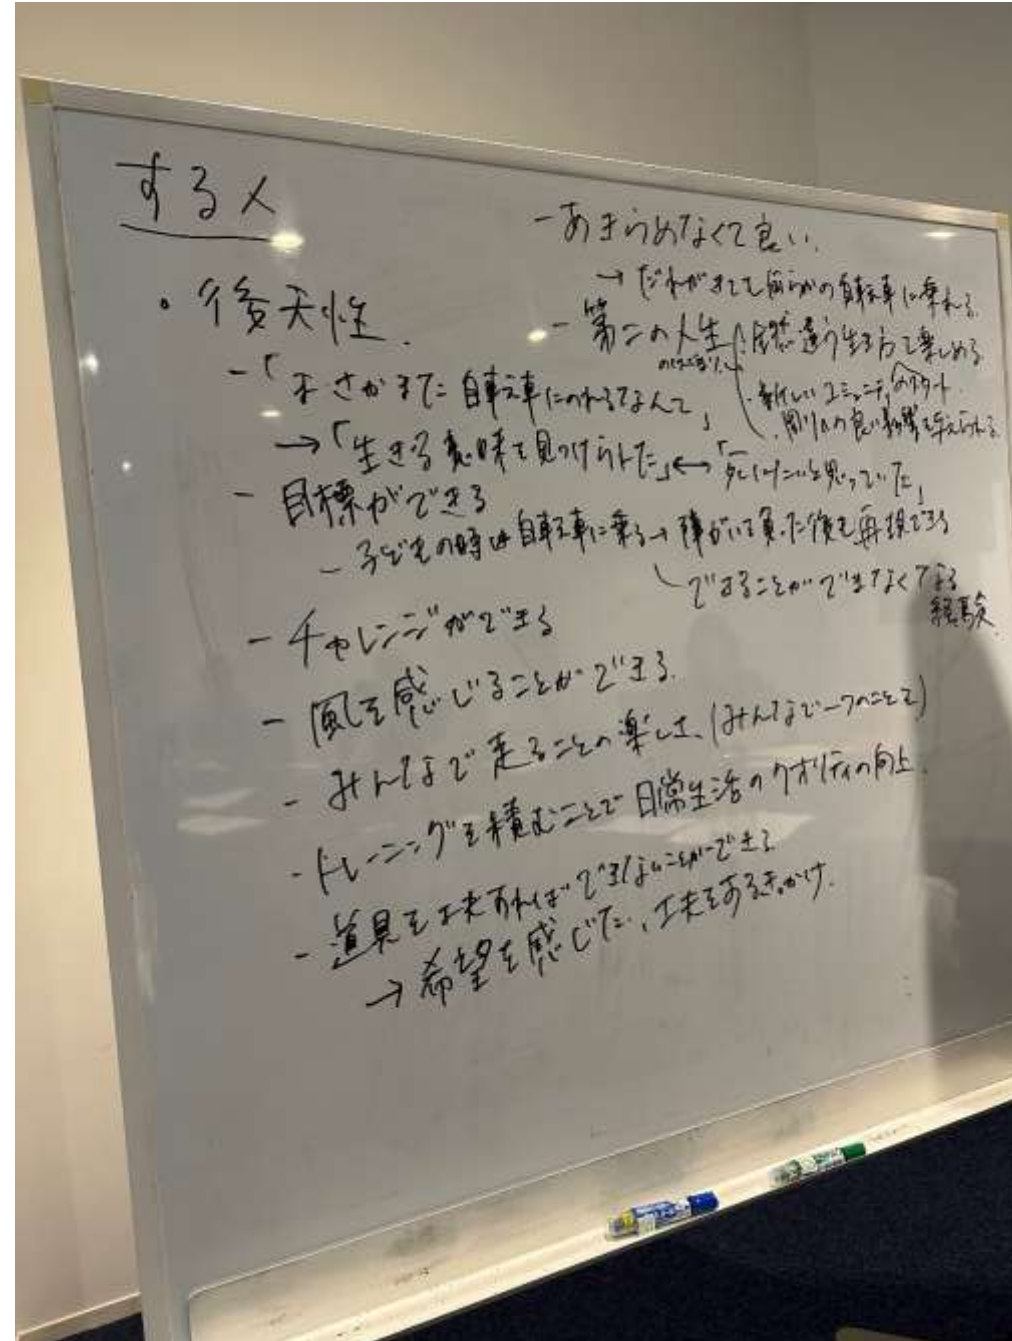 する人
・後天性
-「まさかまた自転車にのれるなんて」
→「生きる意味を見つけられた」↔「死にたいと思っていた」
- 目標ができる
- 子どもの時は自転車に乗る→障がいを負った後も再現できる
できることができなくなる
経験
- チャレンジができる
- 風を感じることができる
- みんなで走ることの楽しさ、(みんなで一つのことを)
- トレーニングを積むことで日常生活のクオリティの向上
- 道具を工夫すればできないことができる
→希望を感じた、工夫をするきっかけ
- あきらめなくて良い
→だれがきても何らかの自転車に乗れる
- 第二の人生
全然違う生き方で楽しめる
・新しいコミュニティのスタート
・周りへの良い影響を与えられる